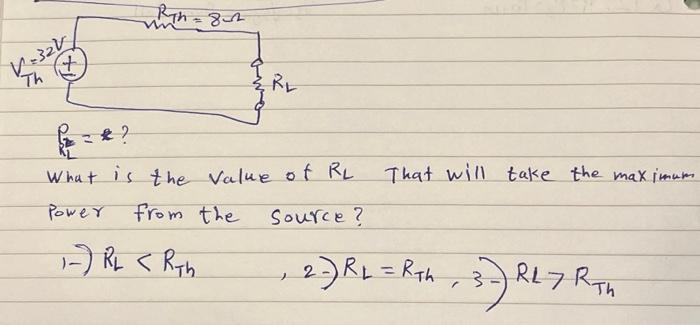 R_Th = 8Ω
V_Th = 32V
R_L
P_RL = ?
What is the value of RL That will take the maximum
Power from the source?
1-) RL < RTh , 2-) RL = RTh , 3-) RL > RTh